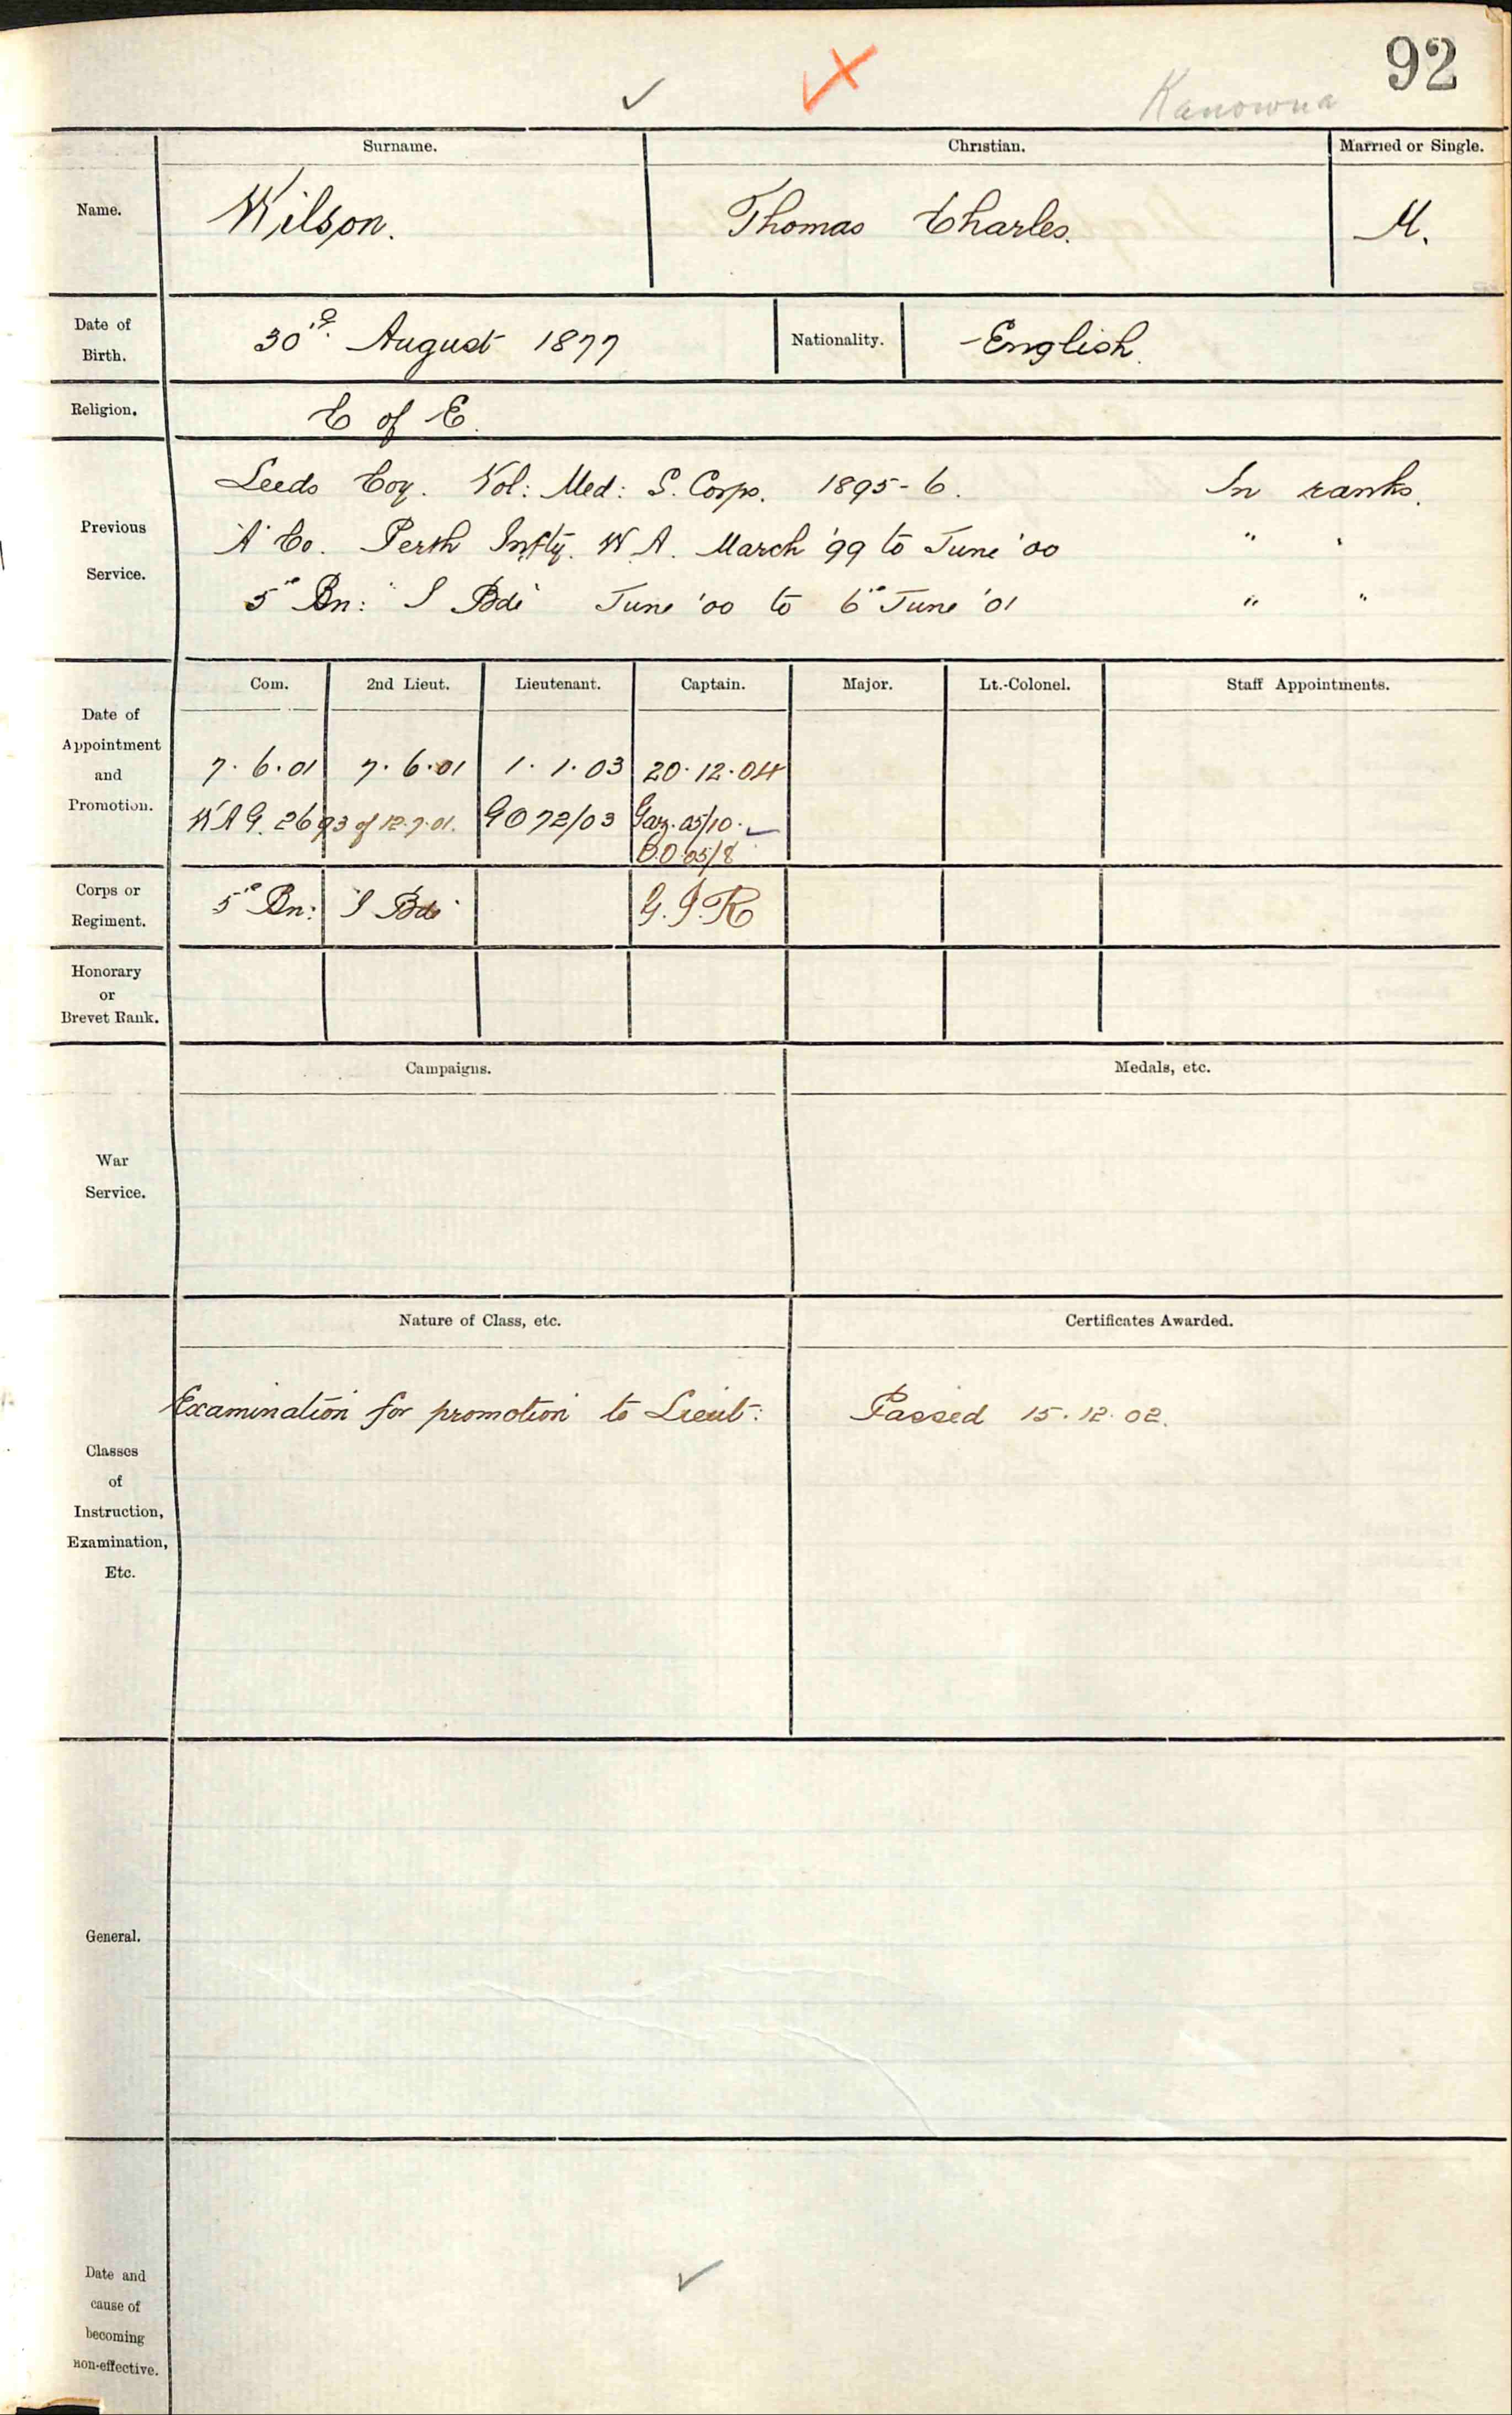 92
Kanowna
Surname. Christian. Married or Single.
Name. Wilson. Thomas Charles. M.
Date of Birth. 30th August 1877 Nationality. English.
Religion. C of E.
Previous Service.
Leeds Coy. Vol: Med: S. Corps. 1895-6. In ranks.
"A" Co. Perth Infty. W.A. March '99 to June '00 " "
5th Bn: "I Bde" June '00 to 6th June '01 " "
Date of Appointment and Promotion.
Com. 2nd Lieut. Lieutenant. Captain. Major. Lt.-Colonel. Staff Appointments.
7.6.01 7.6.01 1.1.03 20.12.04
W A G. 2693 of 12.7.01. GO 72/03 Gaz. 05/10.
D.O. 05/8
Corps or Regiment. 5th Bn: I Bde G.I.R
Honorary or Brevet Rank.
Campaigns. Medals, etc.
War Service.
Nature of Class, etc. Certificates Awarded.
Examination for promotion to Lieut: Passed 15.12.02.
Classes of Instruction, Examination, Etc.
General.
Date and cause of becoming non-effective.